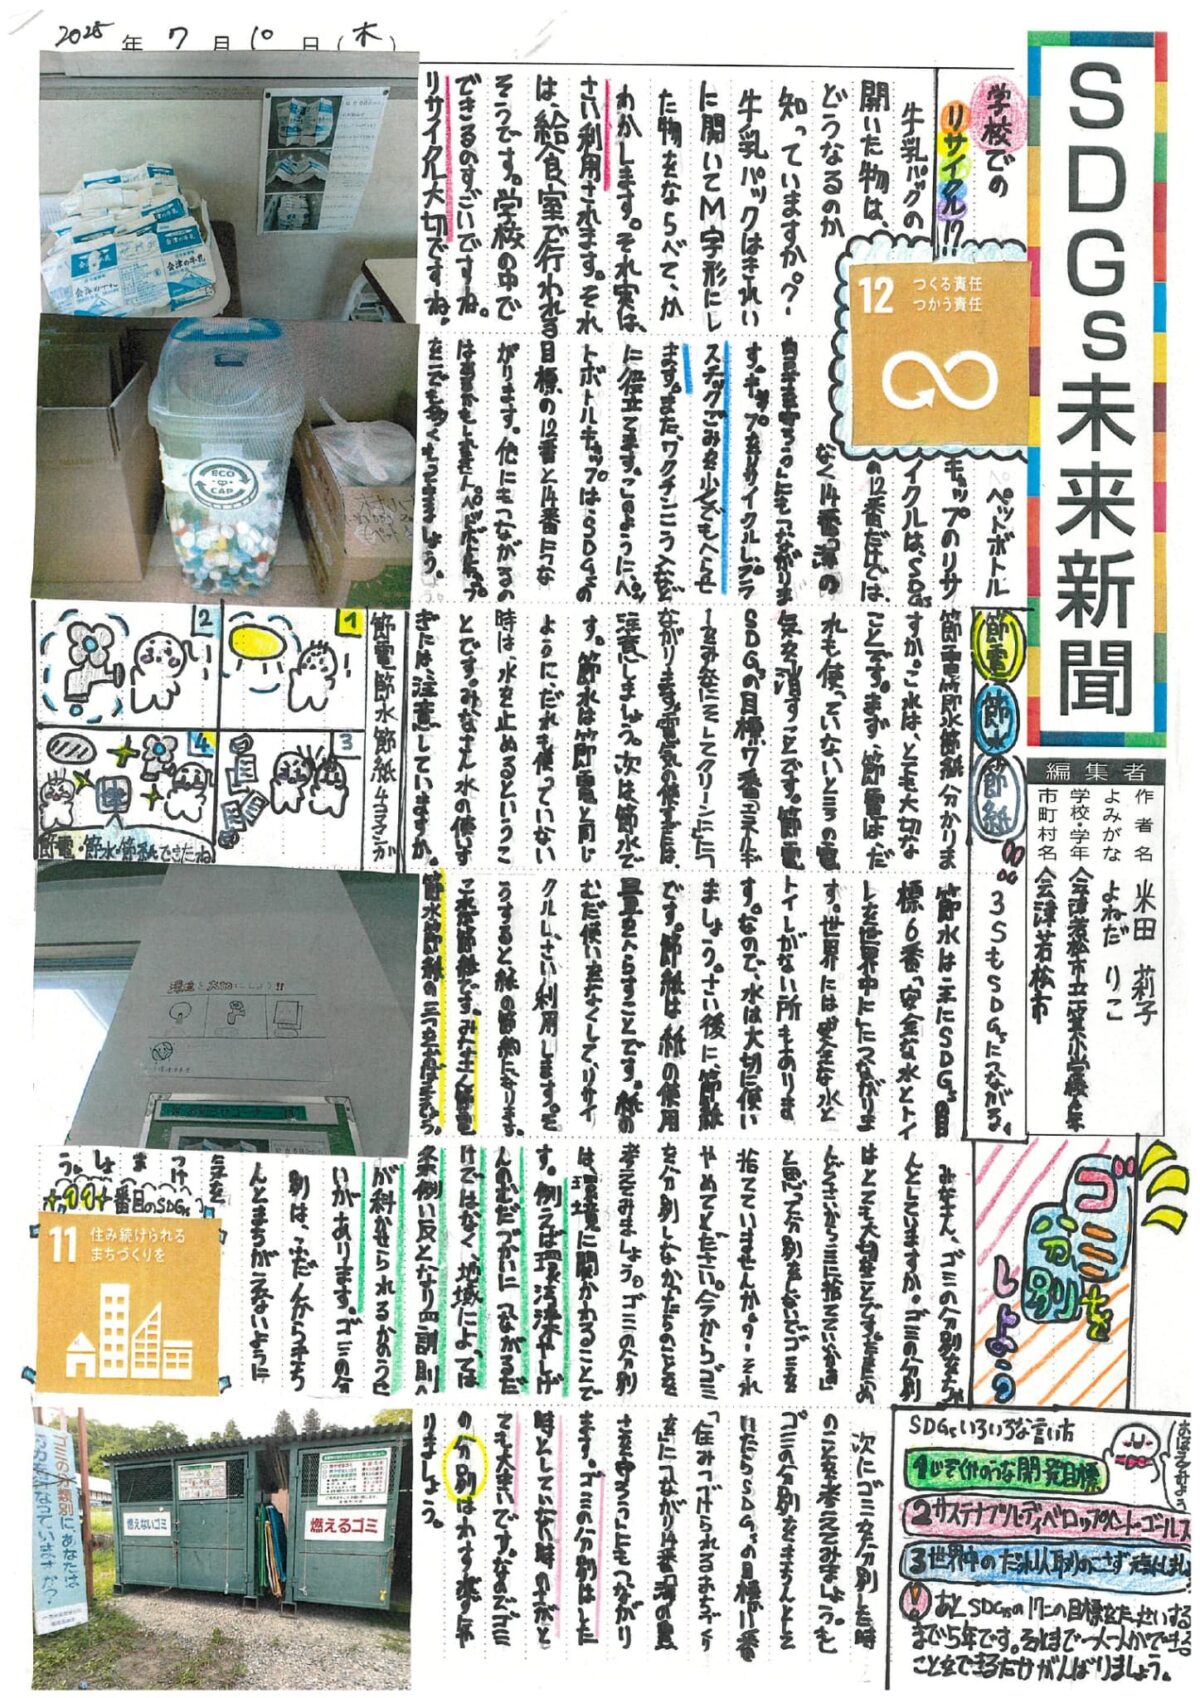 2025年7月10日(木)
SDGs未来新聞
編集者
作者名 米田 莉子
よみがな よねだ りこ
学校・学年 会津若松市立一箕小学校
市町村名 会津若松市
学校での
リサイクル!?
牛乳パックの
開いた物は、
どうなるのか
知っていますか?
牛乳パックはきれい
に開いてM字形にし
た物をならべて、か
わかします。それ実は、
さい利用されます。それ
は、給食室で行われる
そうです。学校の中で
できるのすごいですよね。
リサイクル大切ですね。
12 つくる責任
つかう責任
ペットボトル
キャップのリサ
イクルは、SDGs
の12番だけでは
なく14番「海の
豊かさを守ろう」にもつながりま
す。キャップをリサイクルしプラ
スチックごみを少しでもへらせ
ます。また、ワクチンこう入など
に役立てます。このようにペッ
トボトルキャップはSDGsの
目標の12番と14番につな
がります。他にもつながるの
はあるかもしれません。ペットボトルキャップ
ECO CAP
会津の牛乳
節電
節水
節紙!!
3SもSDGsにつながる。
節電節水節紙分かりま
すか。これは、とても大切な
ことです。まず、節電は、だ
れも使っていないところの電
気を消すことです。節電
SDGsの目標7番「エネルギ
ーをみんなにそしてクリーンに」につ
ながります。電気の使いすぎには、
注意しましょう。次は節水で
す。節水は節電と同じ
ようにだれも使っていない
時は水を止めるというこ
とです。みなさん水の使いす
ぎには、注意していますか。
節水は主にSDGs目
標6番「安全な水とトイ
レを世界中に」につながりま
す。世界には安全な水と
トイレがない所もありま
す。なので、水は大切に使い
ましょう。さい後に、節紙
です。節紙は紙の使用
量をへらすことです。紙の
むだ使いをなくして、リサイ
クル、さい利用します。そ
うすると紙の節約になります。
これが節紙です。みなさん節電
節水節紙の三つを
節電節水節紙4コマまんが
1
2
3
4
節電・節水・節紙できたね
ゴミ分別をしよう
みなさん、ゴミの分別をちゃ
んとしていますか。ゴミの分別
はとても大切なことです。
んどくさいからここに捨てていいかぁ」
と思って分別をしないでゴミを
捨てていませんか。それ
やめてください。今からゴミ
を分別しなかったらのことを
考えてみましょう。ゴミの分別
は、環境に関かわることで
す。例えば環境汚染や
のむだづかいにつながるだ
けではなく、地域によっては
条例い反となり罰則
が科かせられるかのうせ
いがあります。ゴミの分
別は、ふだんからきち
んとまちがえないように
気を
つけ
ましょう。
11番目のSDGs
11 住み続けられる
まちづくりを
次にゴミを分別した時
のことを考えてみましょう。も
ゴミの分別をきちんとして
いたらSDGsの目標11番
「住みつづけられるまちづくり
を」につながり14番「海の豊
さを守ろう」にもつながり
ます。ゴミの分別はした
時としていない時の差がと
ても大きいです。なのでゴミ
の分別はわすれず
りましょう。
ゴミの分類別にあなたは
燃えないゴミ
燃えるゴミ
おぼえてみよう
SDGsいろいろな言い方
1じぞくかのうな開発目標
2サステナブル・ディベロップメント・ゴールズ
3世界中のだれ1人取りのこさず
あとSDGsの17この目標をたっせいする
まで5年です。それまで一人一人ができる
ことをできるだけがんばりましょう。